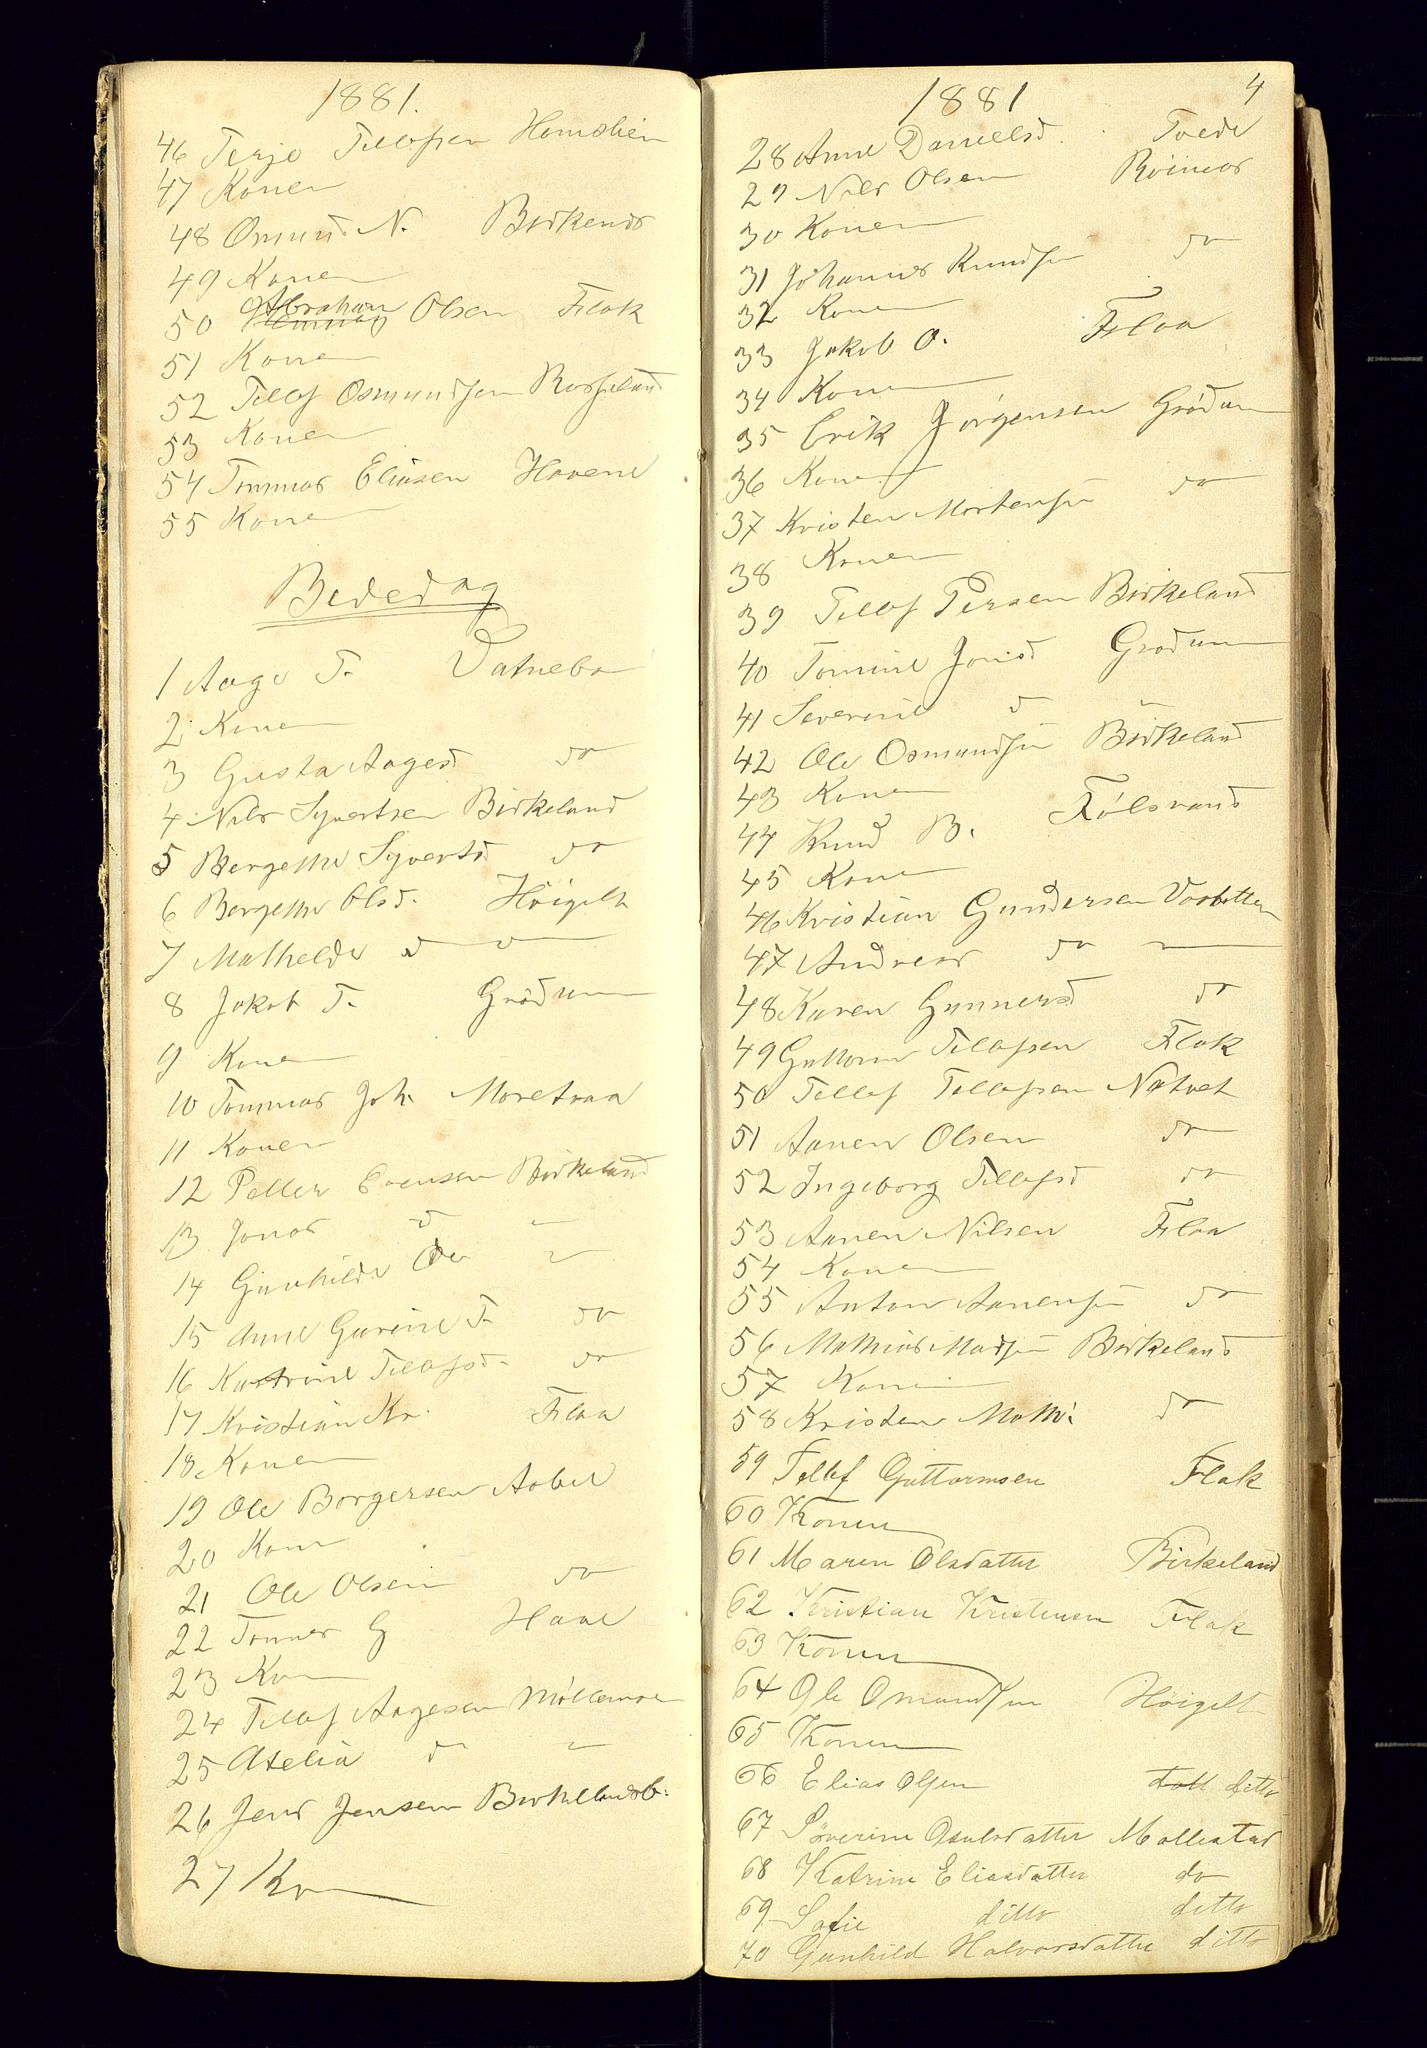 1881.
46 Terje Tellefsen Homslien
47 Konen
48 Omund. N. Birkenes
49 Konen
50 Abraham Olsen Flak
51 Konen
52 Tellef Osmundsen Rosseland
53 Konen
54 Tommas Eliasen Havene
55 Konen
Bededag
1 Aage T. Vatnebo
2 Konen
3 Gusta Aagesd do
4 Nils Syvertsen Birkeland
5 Bergethe Syvertsd do
6 Bergethe Olsd. Höigelt
7 Mathelde d o
8 Jakob T. Grödum
9 Konen
10 Tommas Joh. Moretraa
11 Konen
12 Petter Evensen Birkeland
13 Jonas d -
14 Gunhilde Ole -
15 Anne Gurine T. do
16 Katrine Tellefsd. do
17 Kristian Kr. Flaa
18 Konen
19 Ole Borgersen Aabel
20 Kone
21 Ole Olsen do
22 Tommas G Haae
23 Kon
24 Tellef Aagesen Möllemoe
25 Atelia d -
26 Jens Jensen Birkelandsb.
27 Kon
1881 4
28 Anne Danielsd Tvede
29 Nils Olsen Röimos
30 Konen
31 Johannes Knudsen do
32 Konen
33 Jakob O. Flaa
34 Konen
35 Erik Jörgensen Grödum
36 Konen
37 Kristen Mortensen do
38 Konen
39 Tellef Persen Birkeland
40 Tomine Jonsd Grødum
41 Severine d -
42 Ole Osmundsen Birkeland
43 Konen
44 Knud B. Fölsvand
45 Konen
46 Kristian Gundersen
47 Andreas do
48 Karen Gunnersd do
49 Guttorm Tellefsen Flak
50 Tellef Tellefsen Natvet
51 Aanen Olsen do
52 Ingeborg Tellefsd do
53 Aanen Nilsen Flaa
54 Konen
55 Anton Aanensen do
56 Mathias Madsen Birkeland
57 Konen
58 Kristen Math: do
59 Tellef Guttormsen Flak
60 Konen
61 Maren Olsdatter Birkeland
62 Kristian Kristensen Flak
63 Konen
64 Ole Omundsen Höigelt
65 Konen
66 Elias Olsen ditto
67 Söverine Osulsdatter Mollestad
68 Katrine Eliasdatter do
69 Sofie ditto ditto
70 Gunhild Halvorsdatter ditto